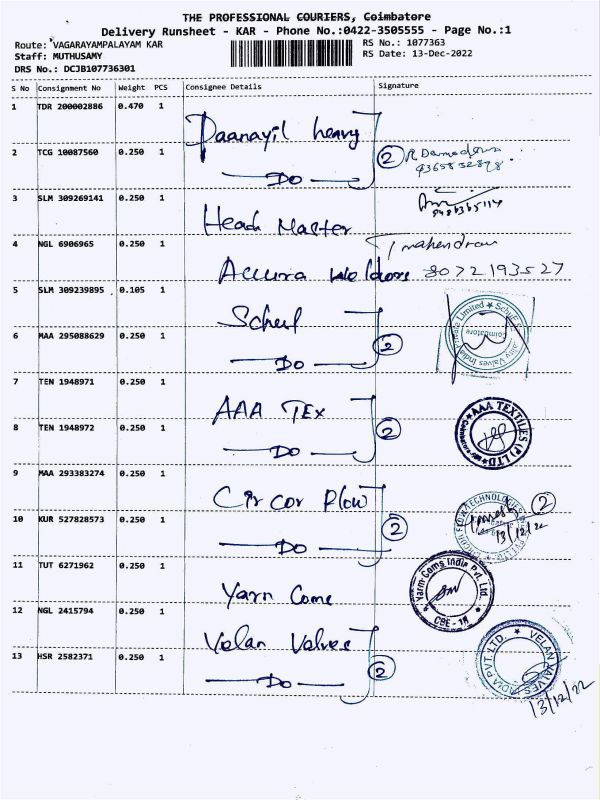 THE PROFESSIONAL COURIERS, Coimbatore
Delivery Runsheet - KAR - Phone No.:0422-3505555 - Page No.:1
Route: VAGARAYAMPALAYAM KAR
RS No.: 1077363
Staff: MUTHUSAMY
RS Date: 13-Dec-2022
DRS No.: DCJB107736301
S No Consignment No Weight PCS Consignee Details Signature
1 TDR 200002886 0.470 1
Daanayil heavy
2 TCG 10087560 0.250 1
Do 2
9365832898
3 SLM 309269141 0.250 1
Head Master
4 NGL 6906965 0.250 1
T mahendran
Accura Weldors 8072193527
5 SLM 309239895 0.105 1
6 MAA 295088629 0.250 1
Do 2
7 TEN 1948971 0.250 1
AAA TEX
8 TEN 1948972 0.250 1
Do 2
AAA TEXTILES (P) LTD
9 MAA 293383274 0.250 1
Circor Flow
10 KUR 527828573 0.250 1
Do 2
FLOW TECHNOLOGIES
2
13/12/22
11 TUT 6271962 0.250 1
Yarn Coms India Pvt. Ltd.
CBE - 18
Yarn Come
12 NGL 2415794 0.250 1
Velan Valves
13 HSR 2582371 0.250 1
Do 2
VELAN VALVES INDIA PVT. LTD.
13/12/22